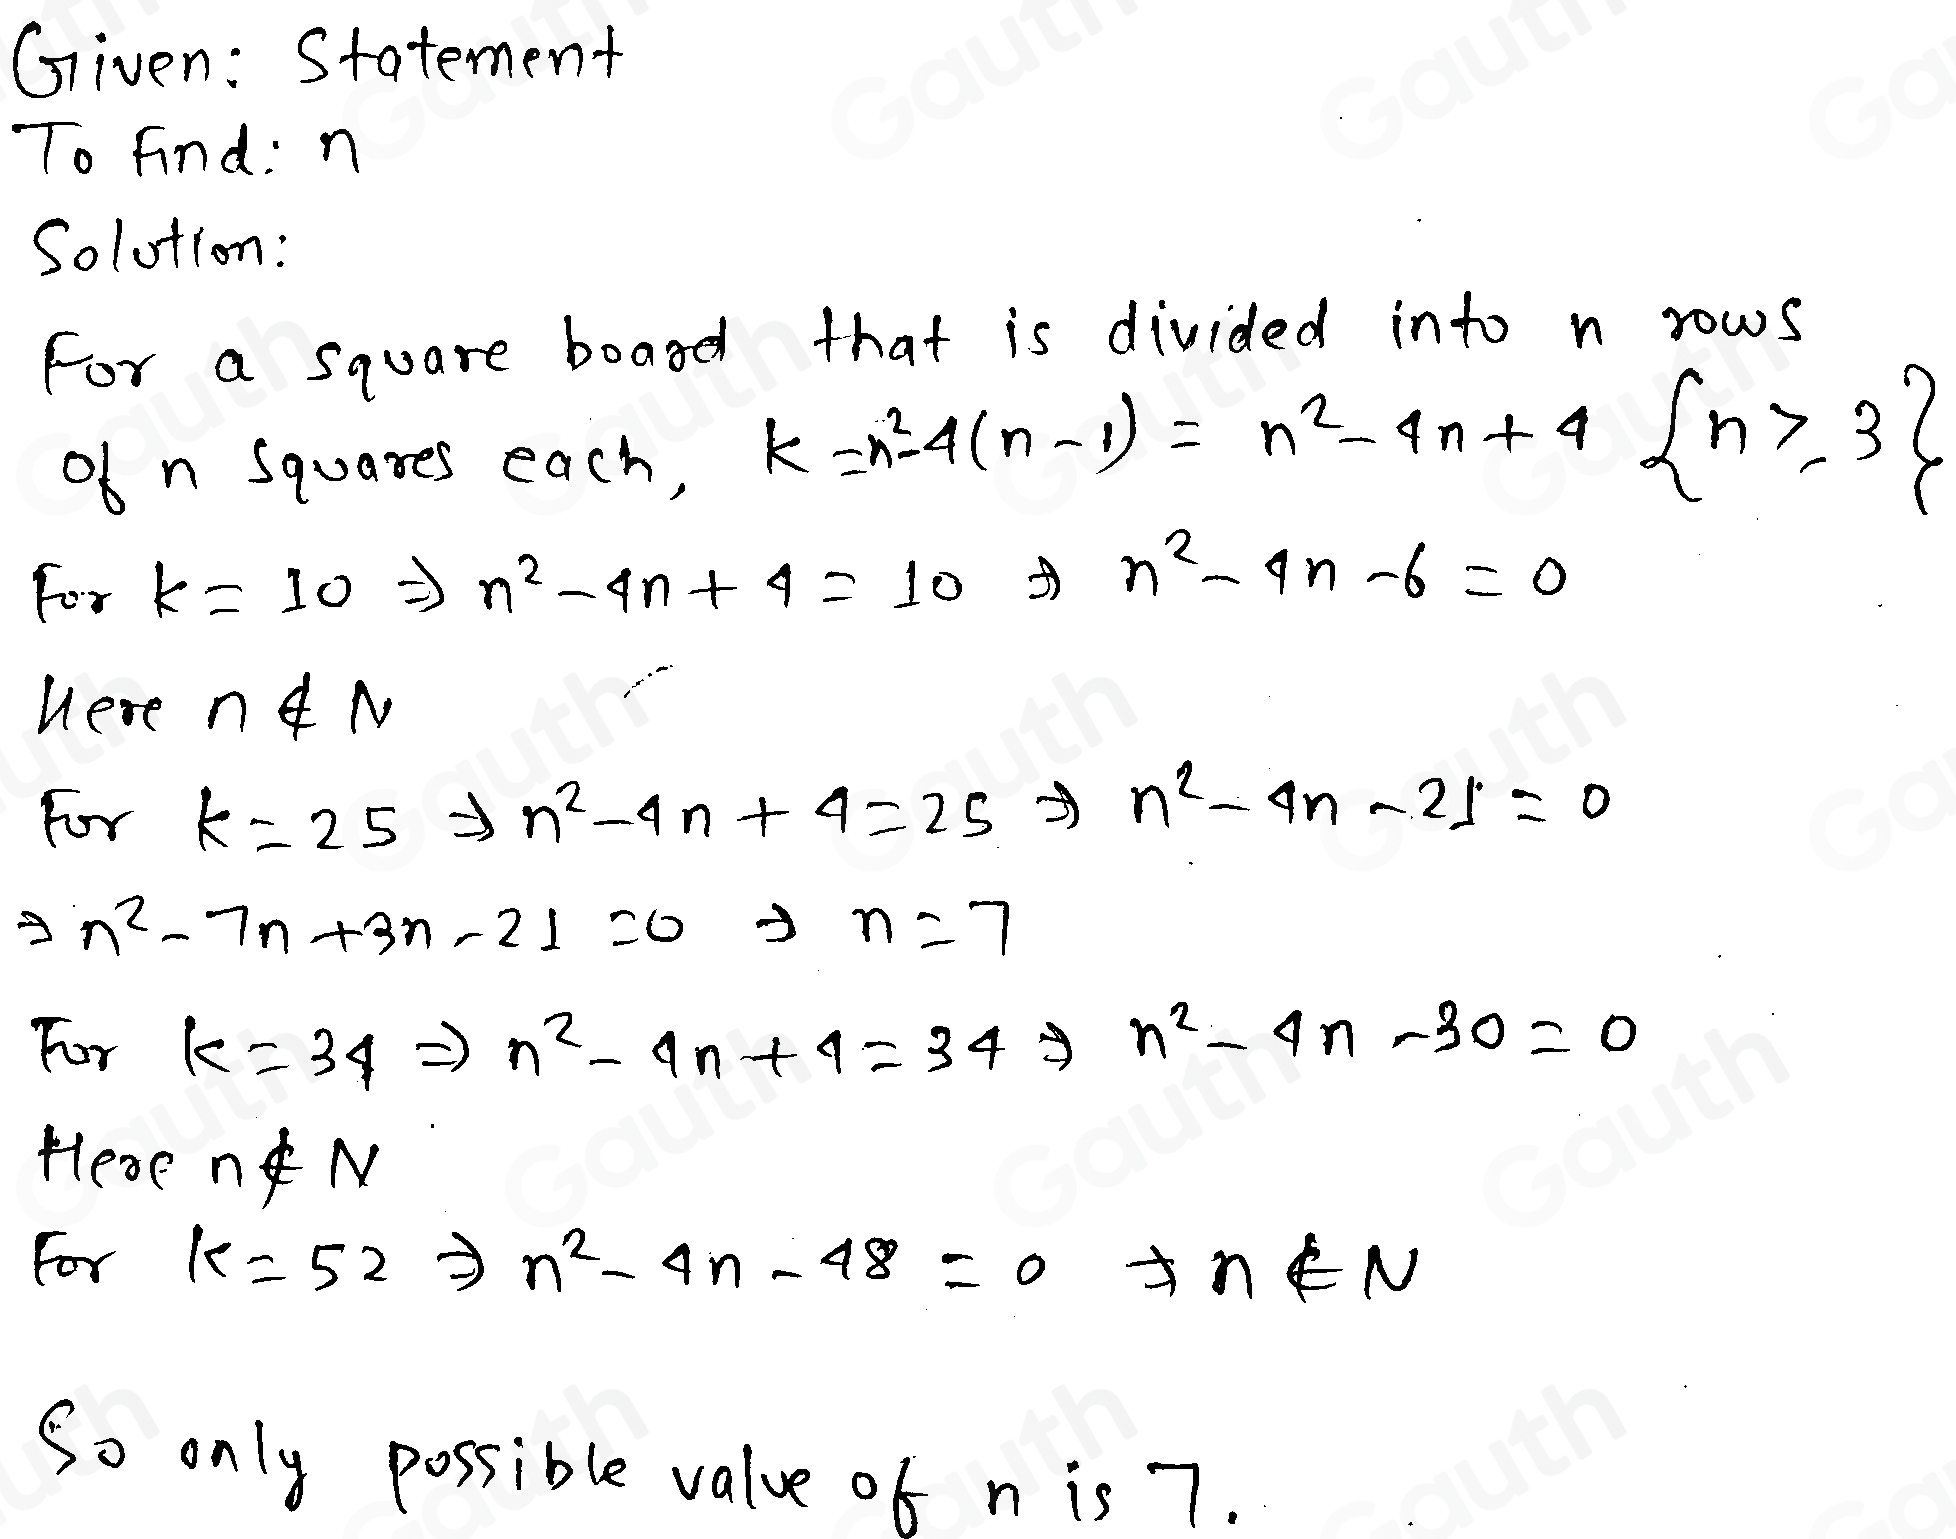 Given: Statement
To find: n
Solution:
For a square board that is divided into n rows
of n squares each, k = n²-4(n-1) = n²-4n+4 {n≥3}
For k = 10 ⇒ n²-4n+4 = 10 ⇒ n²-4n-6 = 0
Here n ∉ N
For k = 25 ⇒ n²-4n+4 = 25 ⇒ n²-4n-21 = 0
⇒ n²-7n+3n-21 = 0 ⇒ n = 7
For k = 34 ⇒ n²-4n+4 = 34 ⇒ n²-4n-30 = 0
Here n ∉ N
For k = 52 ⇒ n²-4n-48 = 0 ⇒ n ∉ N
So only possible value of n is 7.